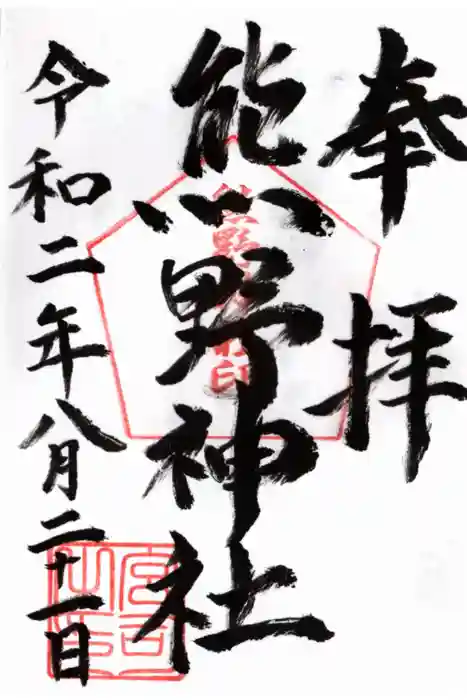 奉拝
熊野神社
令和二年八月二十一日